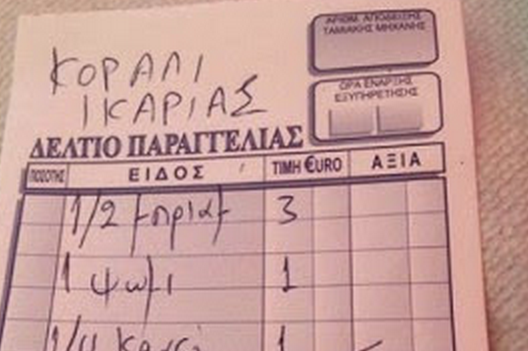 ΑΡΙΘΜ. ΑΠΟΔΕΙΞΗΣ
ΤΑΜΙΑΚΗΣ ΜΗΧΑΝΗΣ
ΚΟΡΑΛΙ
ΙΚΑΡΙΑΣ
ΩΡΑ ΕΝΑΡΞΗΣ
ΕΞΥΠΗΡΕΤΗΣΗΣ
ΔΕΛΤΙΟ ΠΑΡΑΓΓΕΛΙΑΣ
ΠΟΣΟΤΗΣ ΕΙΔΟΣ ΤΙΜΗ €URO ΑΞΙΑ
1/2 3
1 ψωμι 1
1/4 1